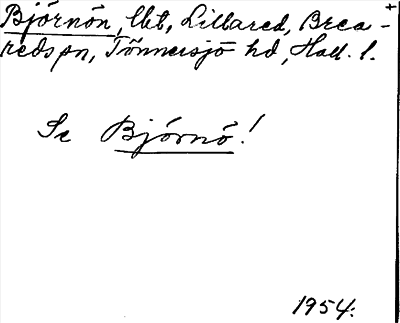 Björnön, lht, Lillared, Brea-
reds sn, Tönnersjö hd, Hall. l.
Se Björnö!
1954.